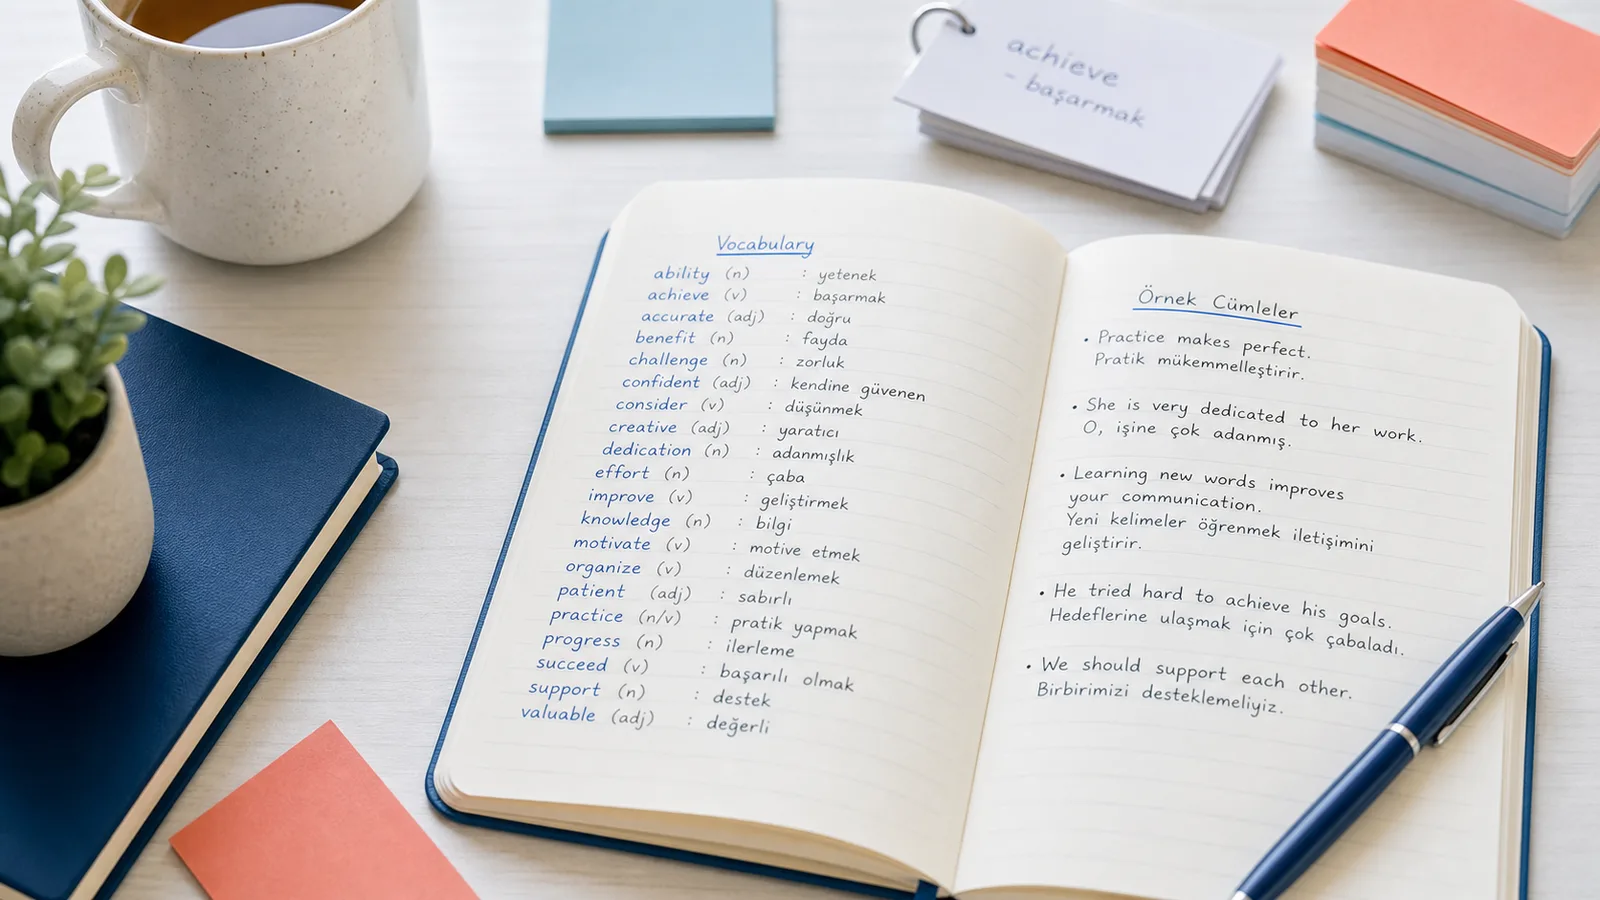 achieve
- başarmak
Vocabulary
ability (n) : yetenek
achieve (v) : başarmak
accurate (adj) : doğru
benefit (n) : fayda
challenge (n) : zorluk
confident (adj) : kendine güvenen
consider (v) : düşünmek
creative (adj) : yaratıcı
dedication (n) : adanmışlık
effort (n) : çaba
improve (v) : geliştirmek
knowledge (n) : bilgi
motivate (v) : motive etmek
organize (v) : düzenlemek
patient (adj) : sabırlı
practice (n/v) : pratik yapmak
progress (n) : ilerleme
succeed (v) : başarılı olmak
support (n) : destek
valuable (adj) : değerli
Örnek Cümleler
• Practice makes perfect.
Pratik mükemmelleştirir.
• She is very dedicated to her work.
O, işine çok adanmış.
• Learning new words improves
your communication.
Yeni kelimeler öğrenmek iletişimini
geliştirir.
• He tried hard to achieve his goals.
Hedeflerine ulaşmak için çok çabaladı.
• We should support each other.
Birbirimizi desteklemeliyiz.